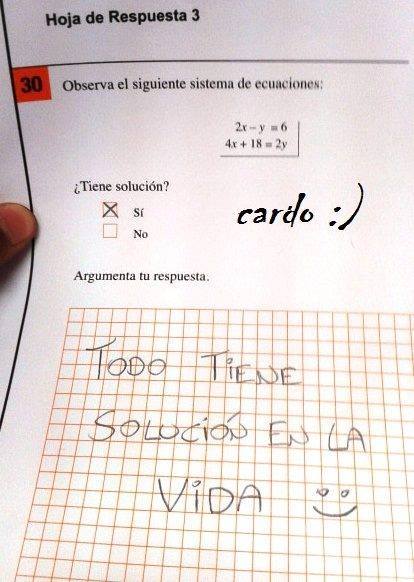 Hoja de Respuesta 3
30 Observa el siguiente sistema de ecuaciones:
2x – y = 6
4x + 18 = 2y
¿Tiene solución?
Sí
cardo :)
No
Argumenta tu respuesta.
TODO TIENE
SOLUCIÓN EN LA
VIDA